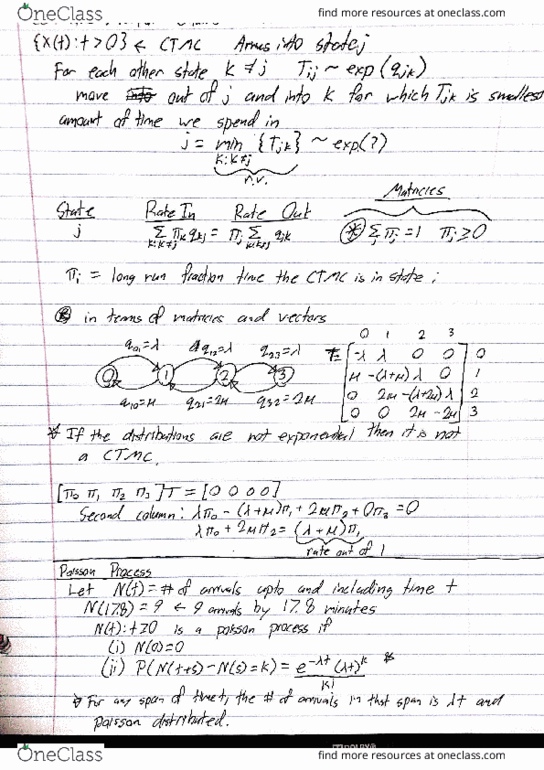 OneClass
find more resources at oneclass.com
{X(t): t>0} ← CTMC Arrives into state j
For each other state k ≠ j Tij ~ exp(qjk)
move out of j and into k for which Tjk is smallest
amount of time we spend in
j = min {Tjk} ~ exp(?)
k: k≠j
r.v.
Matricies
State Rate In Rate Out
j Σ πk qkj = πj Σ qjk (*) Σ πj = 1 πj ≥ 0
k: k≠j k: k≠j j
πj = long run fraction time the CTMC is in state j
(*) in terms of matricies and vectors
q01=λ q12=λ q23=λ
0 1 2 3
q10=μ q21=2μ q32=2μ
0 1 2 3
T = [ -λ λ 0 0 ] 0
μ -(λ+μ) λ 0 1
0 2μ -(λ+2μ) λ 2
0 0 2μ -2μ 3
* If the distributions are not exponential then it is not
a CTMC.
[π0 π1 π2 π3]T = [0 0 0 0]
Second column: λπ0 - (λ+μ)π1 + 2μπ2 + 0π3 = 0
λπ0 + 2μπ2 = (λ+μ)π1
rate out of 1
Poisson Process
Let N(t) = # of arrivals upto and including time t
N(17.8) = 9 ← 9 arrivals by 17.8 minutes
N(t): t≥0 is a poisson process if
(i) N(0)=0
(ii) P(N(t+s) - N(s) = k) = e^-λt (λt)^k *
k!
* For any span of time t, the # of arrivals in that span is λt and
poisson distributed.
OneClass
find more resources at oneclass.com